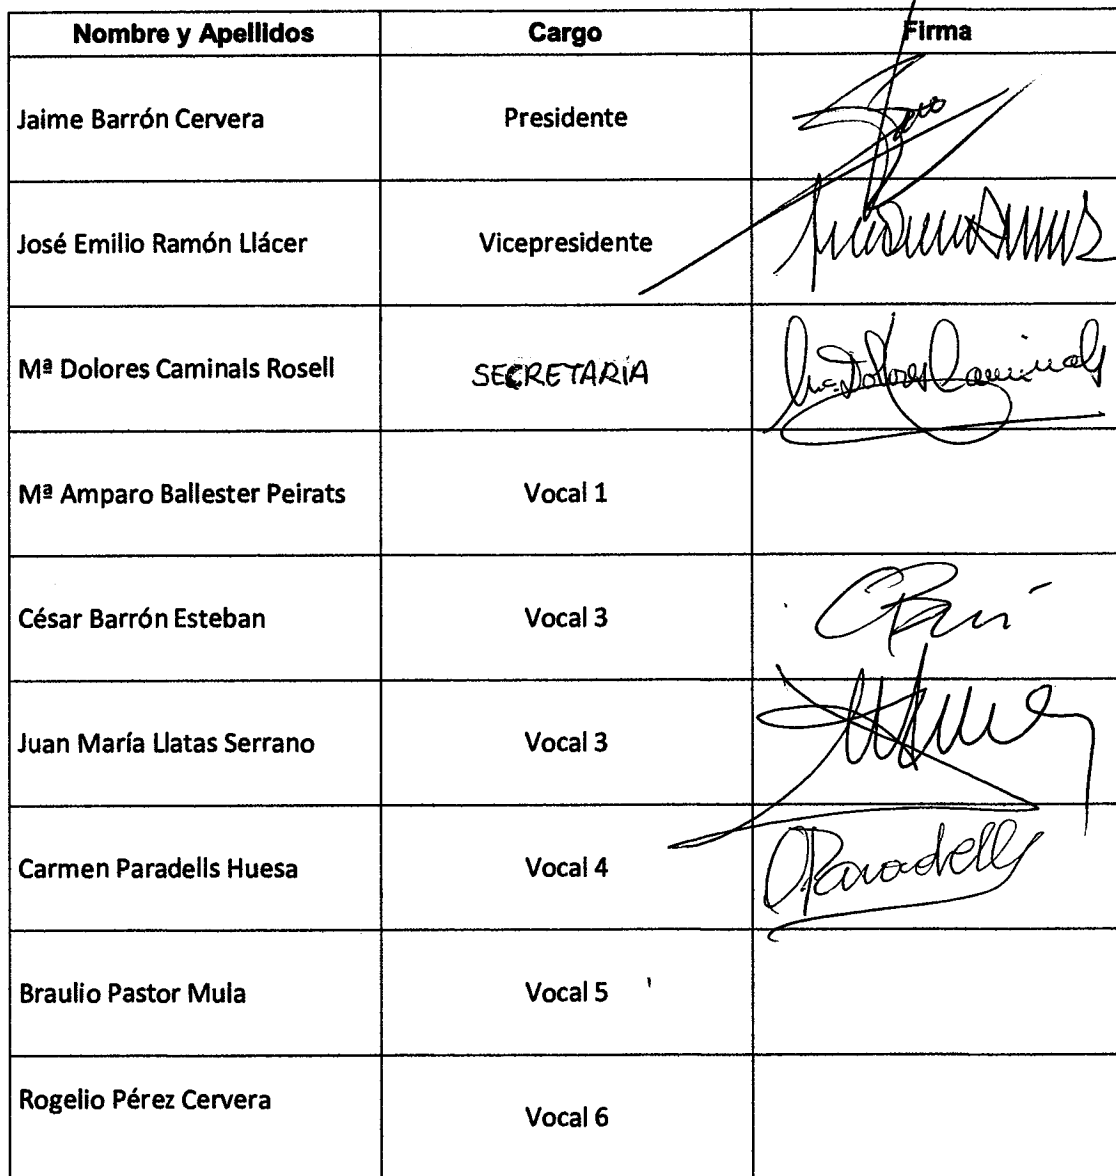 Nombre y Apellidos Cargo Firma
Jaime Barrón Cervera Presidente
José Emilio Ramón Llácer Vicepresidente
Mª Dolores Caminals Rosell SECRETARÍA Mª Dolores Caminals
Mª Amparo Ballester Peirats Vocal 1
César Barrón Esteban Vocal 3
Juan María Llatas Serrano Vocal 3
Carmen Paradells Huesa Vocal 4 CParadells
Braulio Pastor Mula Vocal 5
Rogelio Pérez Cervera Vocal 6